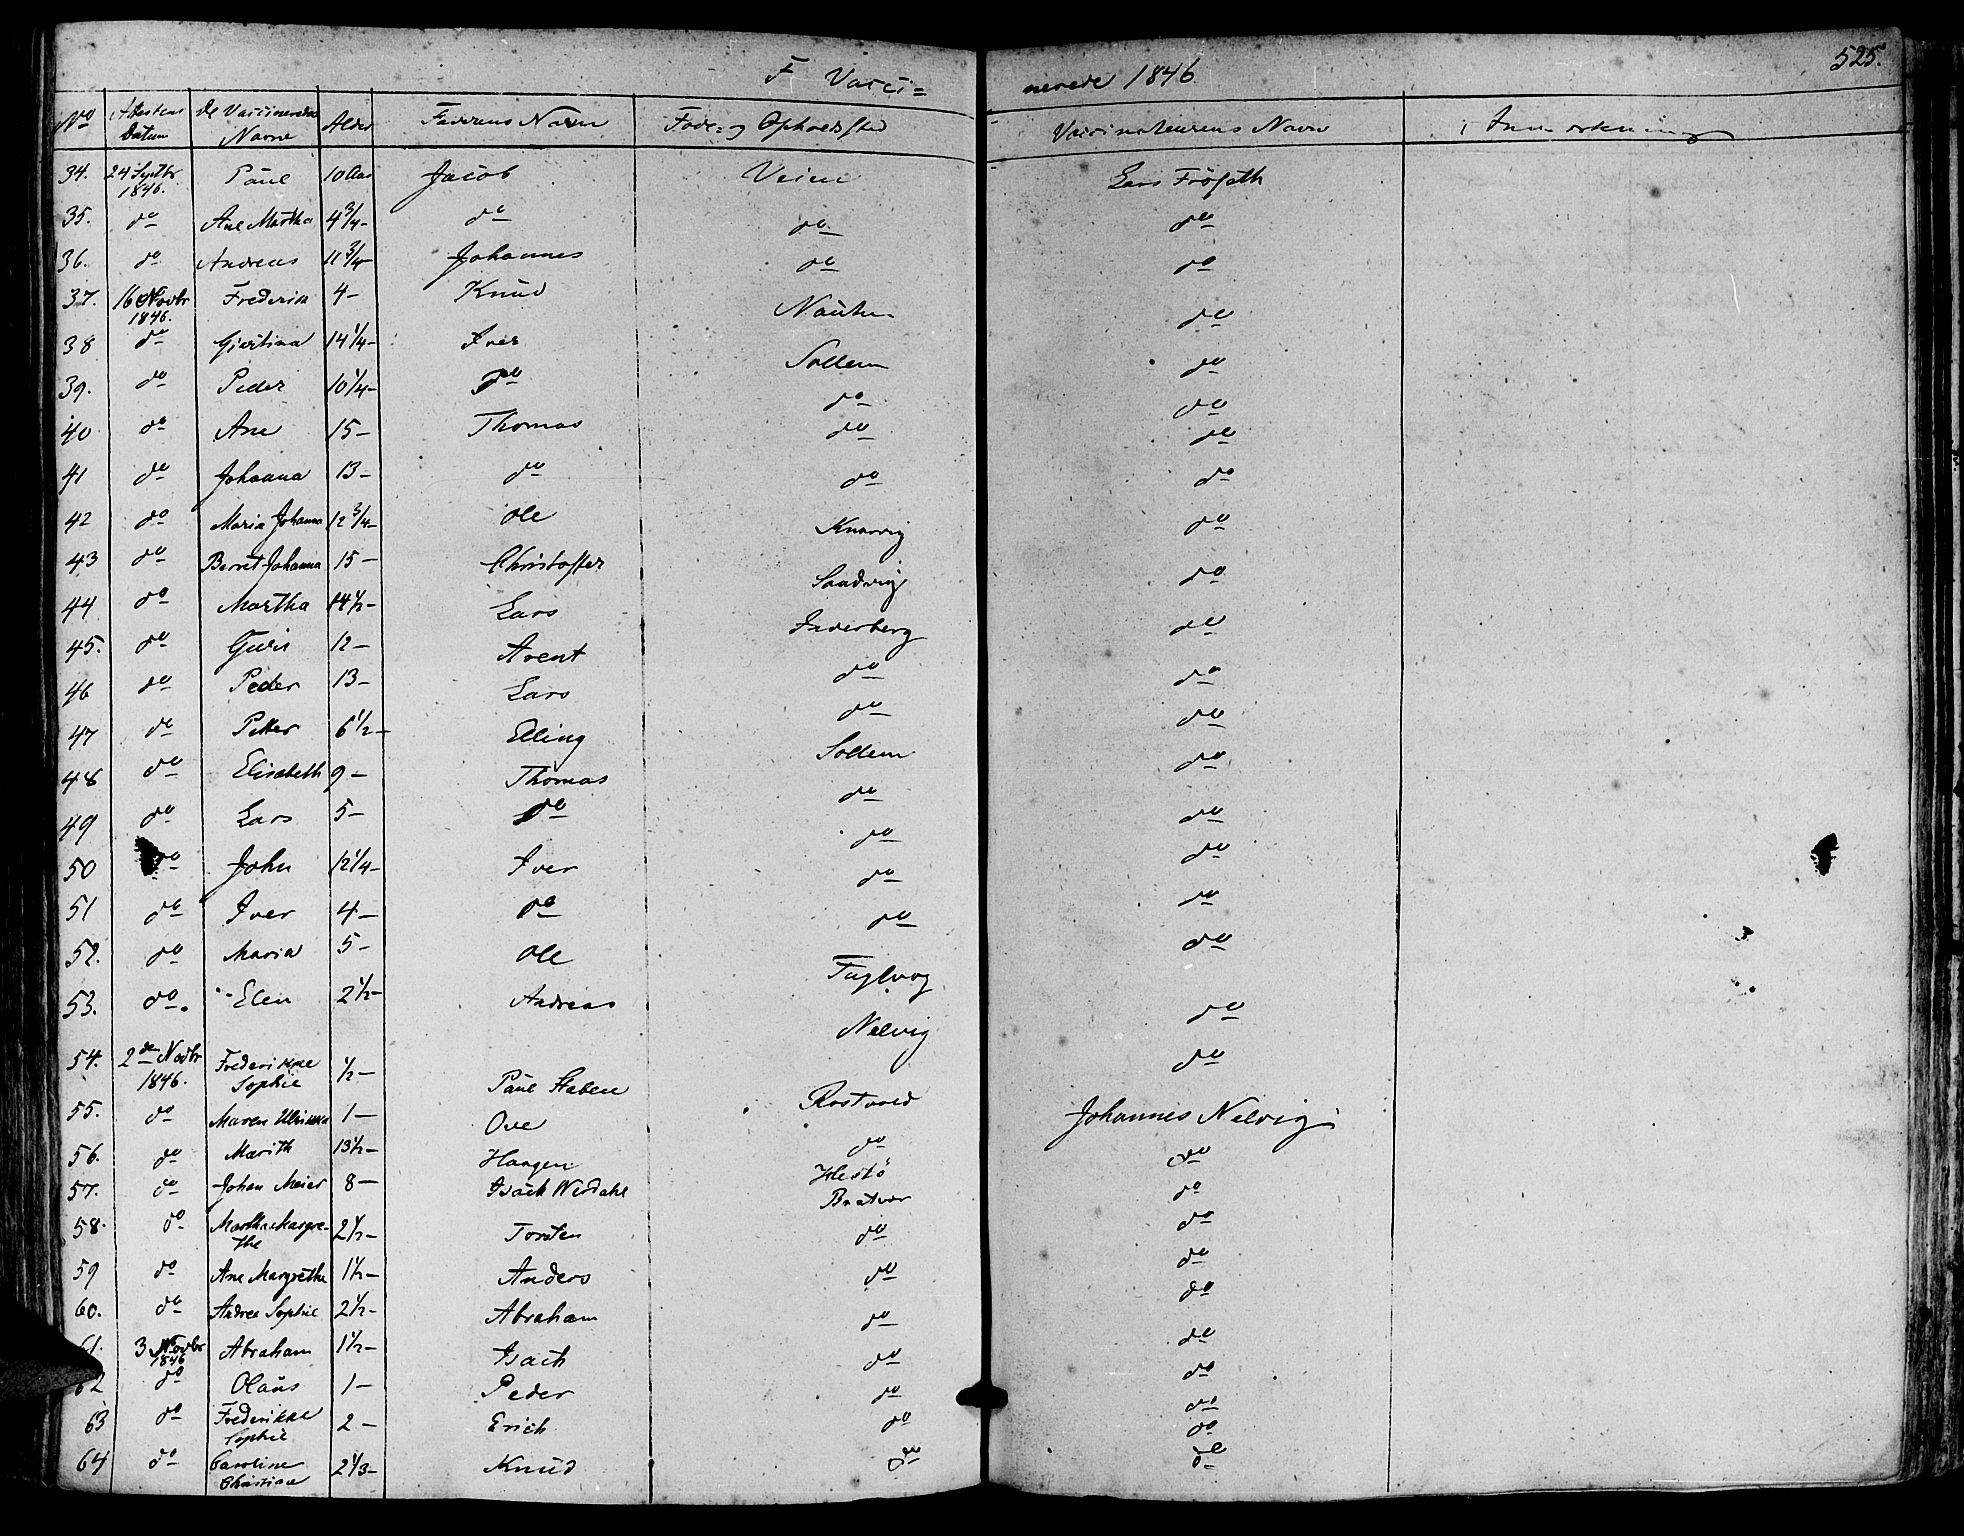 525.
F Vacci= nerede 1846
No Attestens Datum De Vaccineredes Navne Alder Faderens Navn Føde= og Opholdssted Vaccinateurens Navn Anmærkning
34. 24 Septbr 1846. Paul 10 Aar Jacob Veien Lars Frösæth
35. do Ane Martha 4 3/4 - do do do
36. do Andreas 11 3/4 - Johannes do do
37. 16 Novbr 1846. Frederik 4 - Knud do
38 do Gjertina 14 1/4 - Iver Sollem do
39. do Peder 10 1/4 - do do do
40 do Ane 15 - Thomas do do
41 do Johanna 13 - do do do
42 do Maria Johanna 12 3/4 - Ole Knarvig do
43 do Berret Johanna 15 - Christoffer Sandvig do
44 do Martha 14 1/2 - Lars Inderberg do
45. do Guri 12 - Arent do do
46 do Peder 13 - Lars do do
47 do Petter 6 1/2 - Elling Sollem do
48 do Elisabeth 9 - Thomas do do
49 do Lars 5 - do do do
50 do John 12 1/4 - Iver do do
51 do Iver 4 - do do do
52. do Maria 5 - Ole Fuglvog do
53. do. Elen 2 1/2 - Andreas Nelvig do
54. 2den Novbr 1846. Frederikke Sophie 1/2 - Paul Staben Rostvold do
55. do Maren Ulrikka 1 - Ove do Johannes Nelvig
56. do Marith 13 1/2 - Haagen Hestö do
57. do Johan Meier 8 - Isack Werdahl Bratvær do
58. do Martha Margrethe 2 1/2 - Torsten do do
59 do Ane Margrethe 1 1/2 - Anders do do
60. do Andrea Sophie 2 1/2 - Abraham do do
61. 3 Novbr 1846 Abraham 1 1/2 - Isach do do
62 do Olaus 1 - Peder do do
63 do Frederikke Sophie 2 - Erich do do
64 do Caroline Christiane 2 1/3 - Knud do do
do